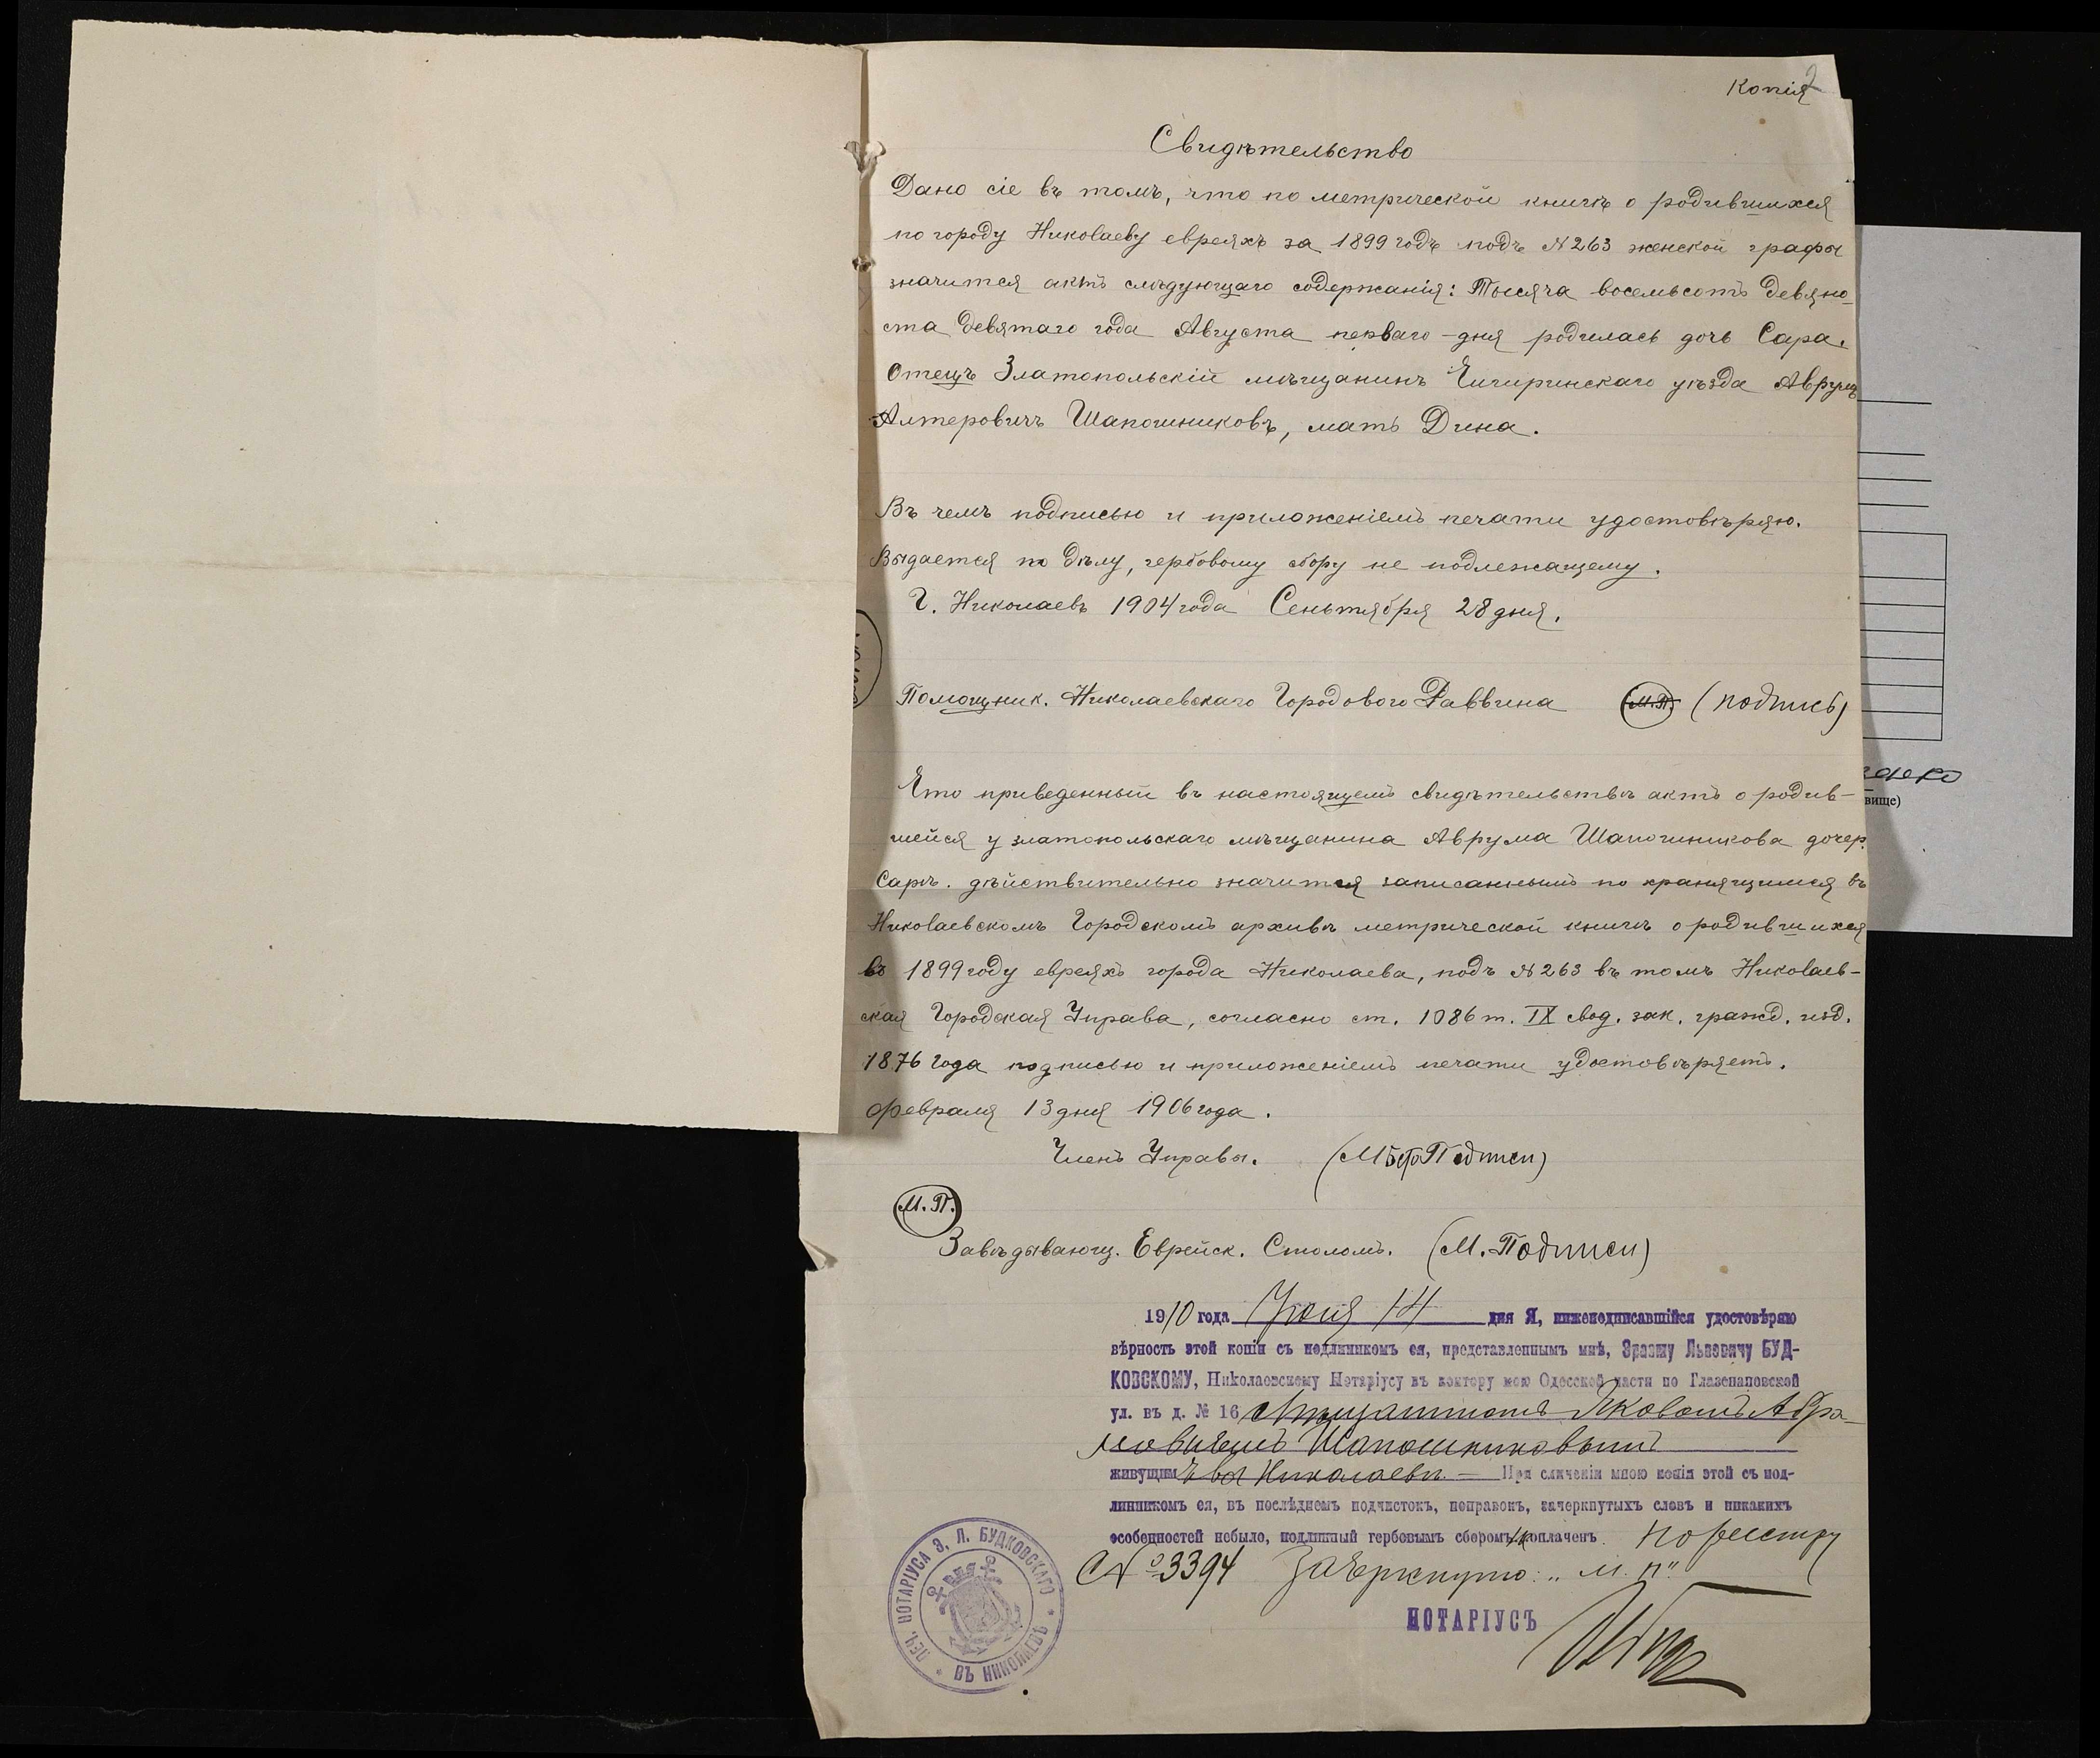 Копія
2
Свидѣтельство
Дано сіе въ томъ, что по метрической книгѣ о родившихся
по городу Николаеву евреяхъ за 1899 годъ подъ №263 женской графы
значится актъ слѣдующаго содержанія: Тысяча восемьсотъ девяно-
ста девятаго года Августа перваго дня родилась дочь Сара.
Отецъ Златопольскій мѣщанинъ Чигиринскаго уѣзда Аврумъ
Алтеровичъ Шапошниковъ, мать Дина.
Въ чемъ подписью и приложеніемъ печати удостовѣряю.
Выдается по дѣлу, гербовому сбору не подлежащему.
Г. Николаевъ 1904 года Сеньтября 28 дня.
Помощник. Николаевскаго Городового Раввина М.П. (подпись)
Что приведенный въ настоящемъ свидѣтельствѣ актъ о родив-
шейся у златопольскаго мѣщанина Аврума Шапошникова дочер.
Сарѣ. дѣйствительно значится записаннымъ по хранящимся въ
Николаевскомъ Городскомъ архивѣ метрической книгѣ о родившихся
въ 1899 году евреяхъ города Николаева, подъ №263 въ томъ Николаев-
ская Городская Управа, согласно ст. 1086 т. IX свод. зак. гражд. изд.
1876 года подписью и приложеніемъ печати удостовѣряетъ.
Февраля 13 дня 1906 года.
Членъ Управы. (Мѣсто Подписи)
М.П.
Завѣдывающ. Еврейск. Столомъ. (М. Подписи)
1910 года Іюня 14 дня Я, нижеподписавшійся удостовѣряю
вѣрность этой копіи съ подлинникомъ ея, представленнымъ мнѣ, Эразму Львовичу БУД-
КОВСКОМУ, Николаевскому Нотаріусу въ контору мою Одесской части по Глазенаповской
ул. въ д. № 16 Мѣщаниномъ Яковомъ Абра-
мовичемъ Шапошниковымъ
живущимъ въ г. Николаевѣ — При сличеніи мною копіи этой съ под-
линникомъ ея, въ послѣднемъ подчистокъ, поправокъ, зачеркнутыхъ словъ и никакихъ
особенностей небыло, подлинный гербовымъ сборомъ оплаченъ. По реестру
№ 3394 Зачеркнуто: „М.П."
НОТАРІУСЪ
ПЕЧ. НОТАРІУСА Э. Л. БУДКОВСКАГО * ВЪ НИКОЛАЕВѢ *
вище)